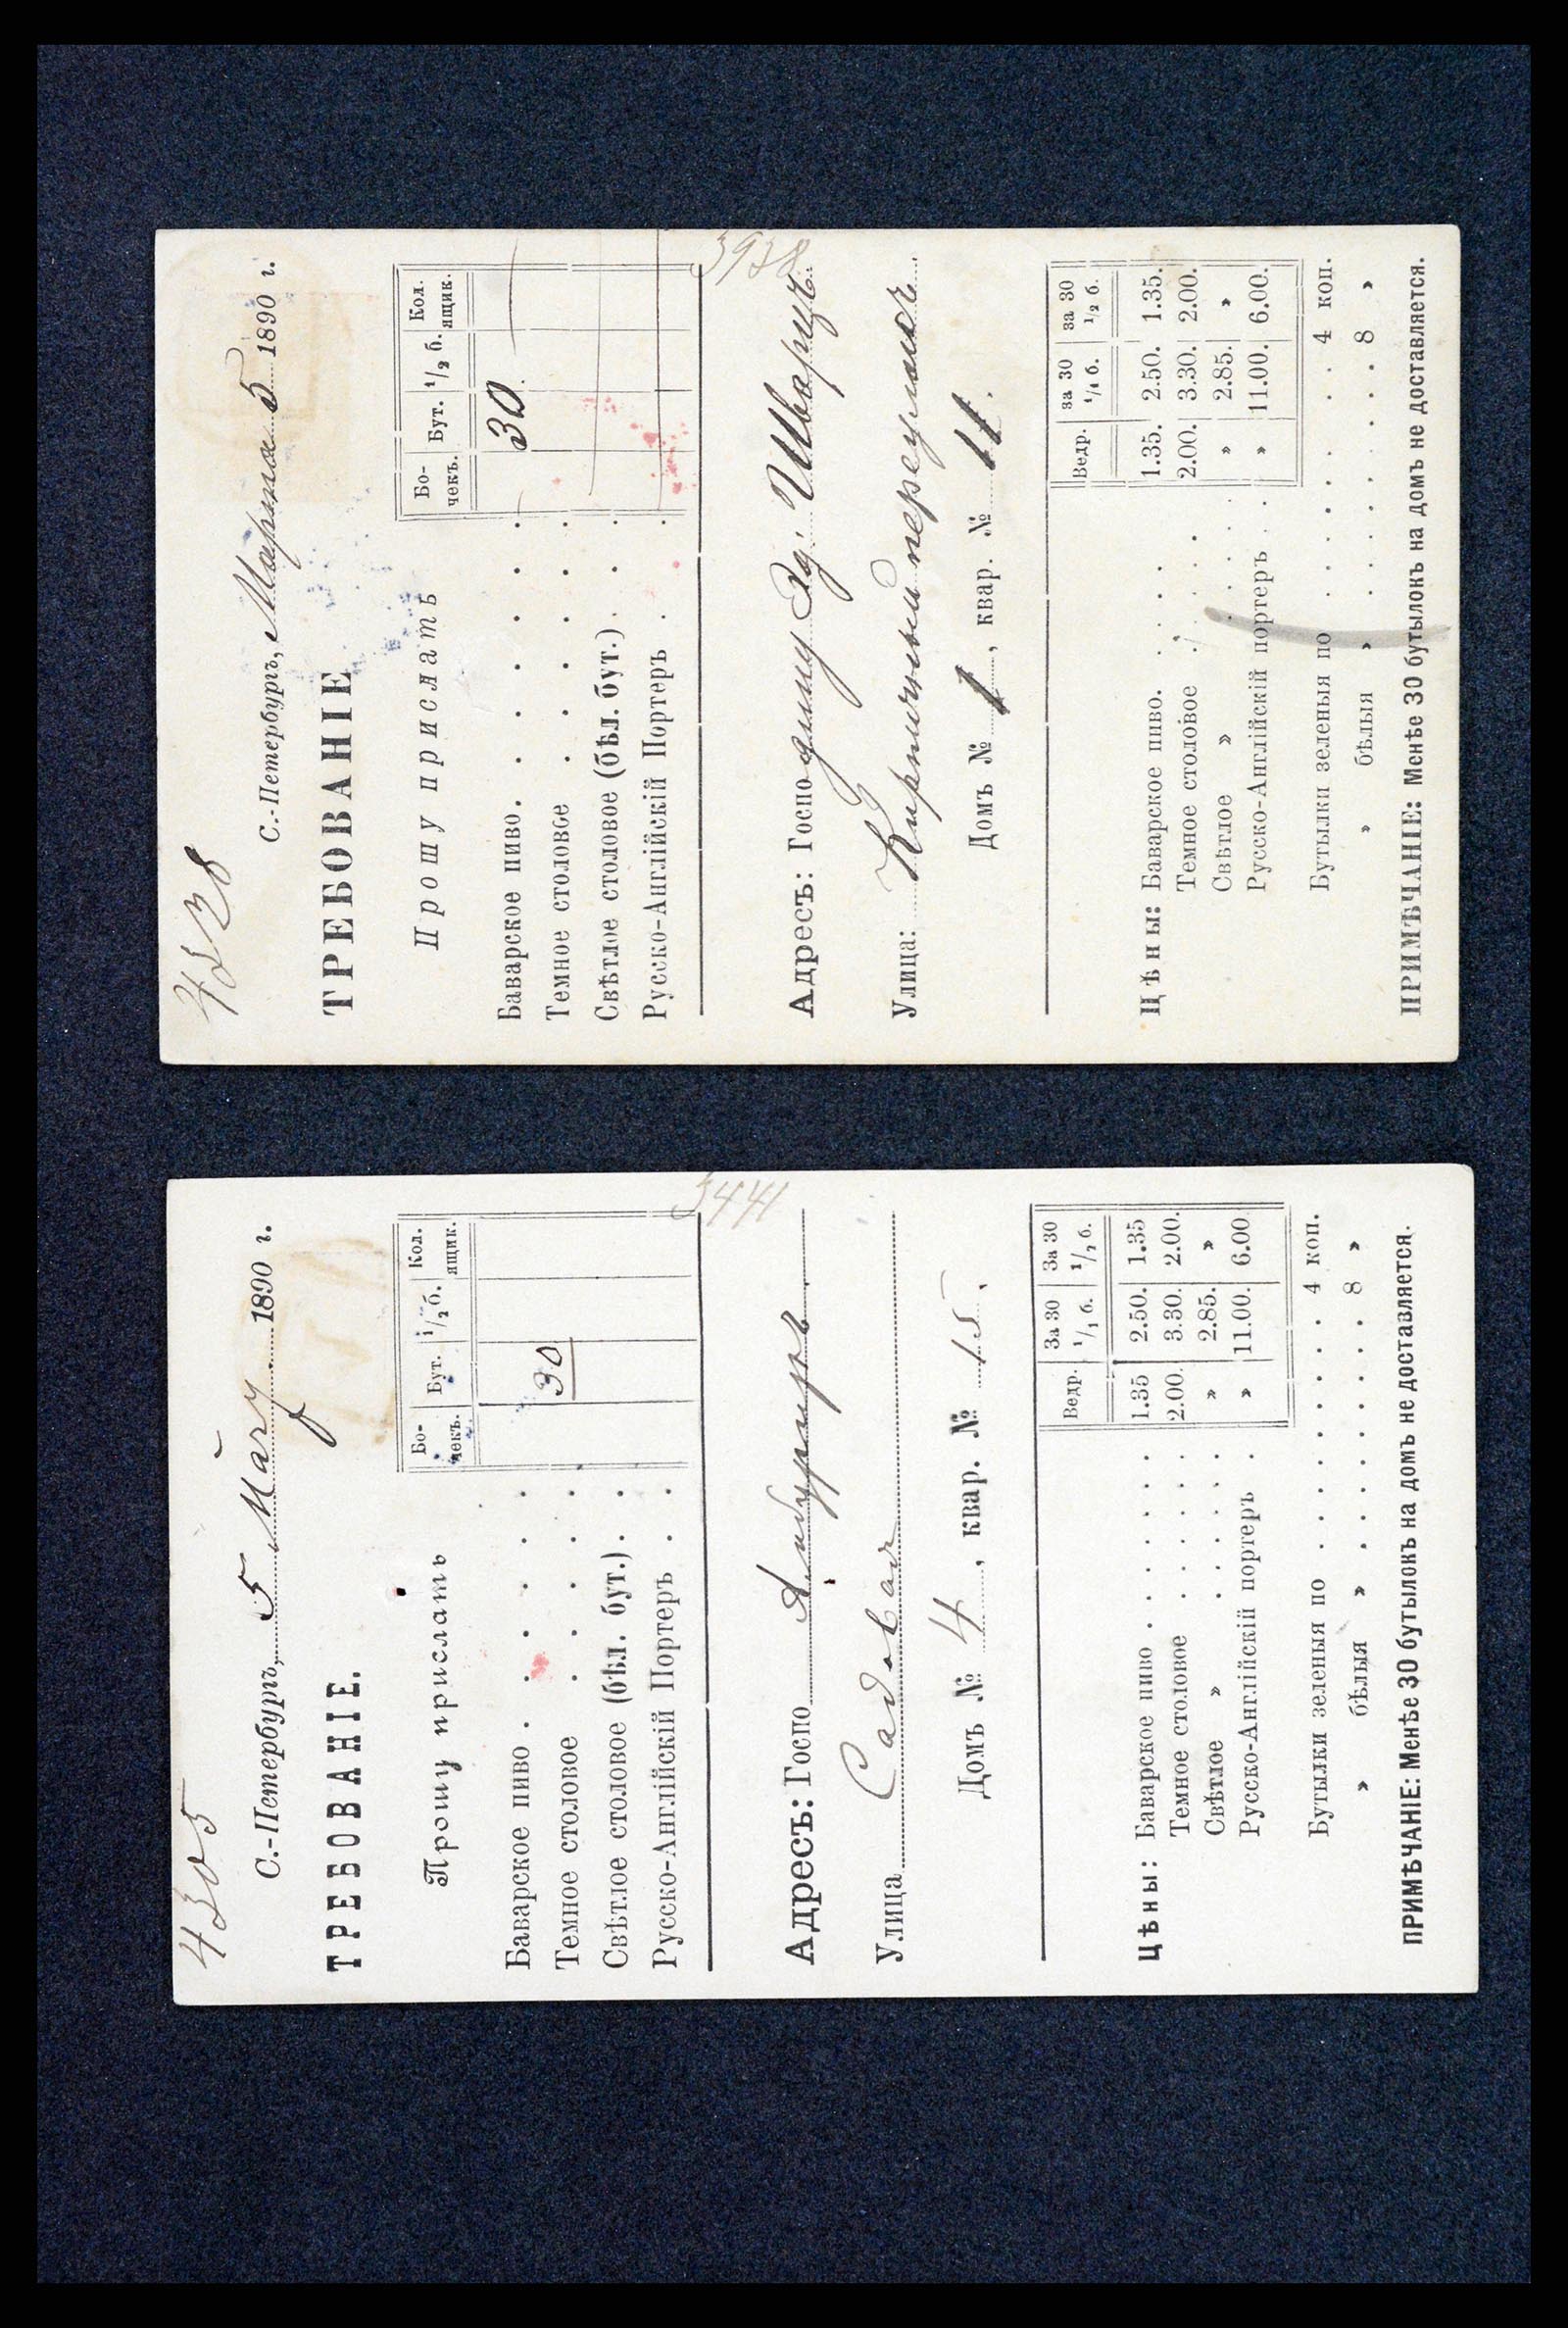 4305
С.-Петербургъ, 5 Марту 1890 г.
ТРЕБОВАНІЕ.
Прошу прислать
Бо-чекъ. Бут. 1/2 б. Кол. ящик.
Баварское пиво . . . . . .
Темное столовое . . . . . 30
Свѣтлое столовое (бѣл. бут.) . .
Русско-Англійскій Портеръ . .
3441
Адресъ: Госпо
Улица Садовая
Домъ № 4, квар. № 15.
Ведр. За 30 1/1 б. За 30 1/2 б.
Цѣны: Баварское пиво . . . . . . 1.35 2.50. 1.35
Темное столовое . . . . . 2.00. 3.30. 2.00.
Свѣтлое » . . . . . » 2.85. »
Русско-Англійскій портеръ . » 11.00. 6.00
Бутылки зеленыя по . . . . . . . 4 коп.
» бѣлыя » . . . . . . . 8 »
ПРИМѢЧАНІЕ: Менѣе 30 бутылокъ на домъ не доставляется.
С.-Петербургъ, Марта 5 1890 г.
ТРЕБОВАНІЕ
Прошу прислать
Бо-чекъ. Бут. 1/2 б. Кол. ящик.
Баварское пиво. . . . . . . 30.
Темное столовое . . . . . .
Свѣтлое столовое (бѣл. бут.) . . .
Русско-Англійскій Портеръ . .
3938
Адресъ: Господину Эд. Шварцъ
Улица: Кирпичный переулокъ
Домъ № 1, квар. № 11.
Ведр. за 30 1/1 б. за 30 1/2 б.
Цѣны: Баварское пиво. . . . . 1.35. 2.50. 1.35.
Темное столовое . . . . 2.00. 3.30. 2.00.
Свѣтлое » . . . . » 2.85. »
Русско-Англійскій портеръ . . » 11.00. 6.00.
Бутылки зеленыя по . . . . . . . 4 коп.
» бѣлыя » . . . . . . . 8 »
ПРИМѢЧАНІЕ: Менѣе 30 бутылокъ на домъ не доставляется.